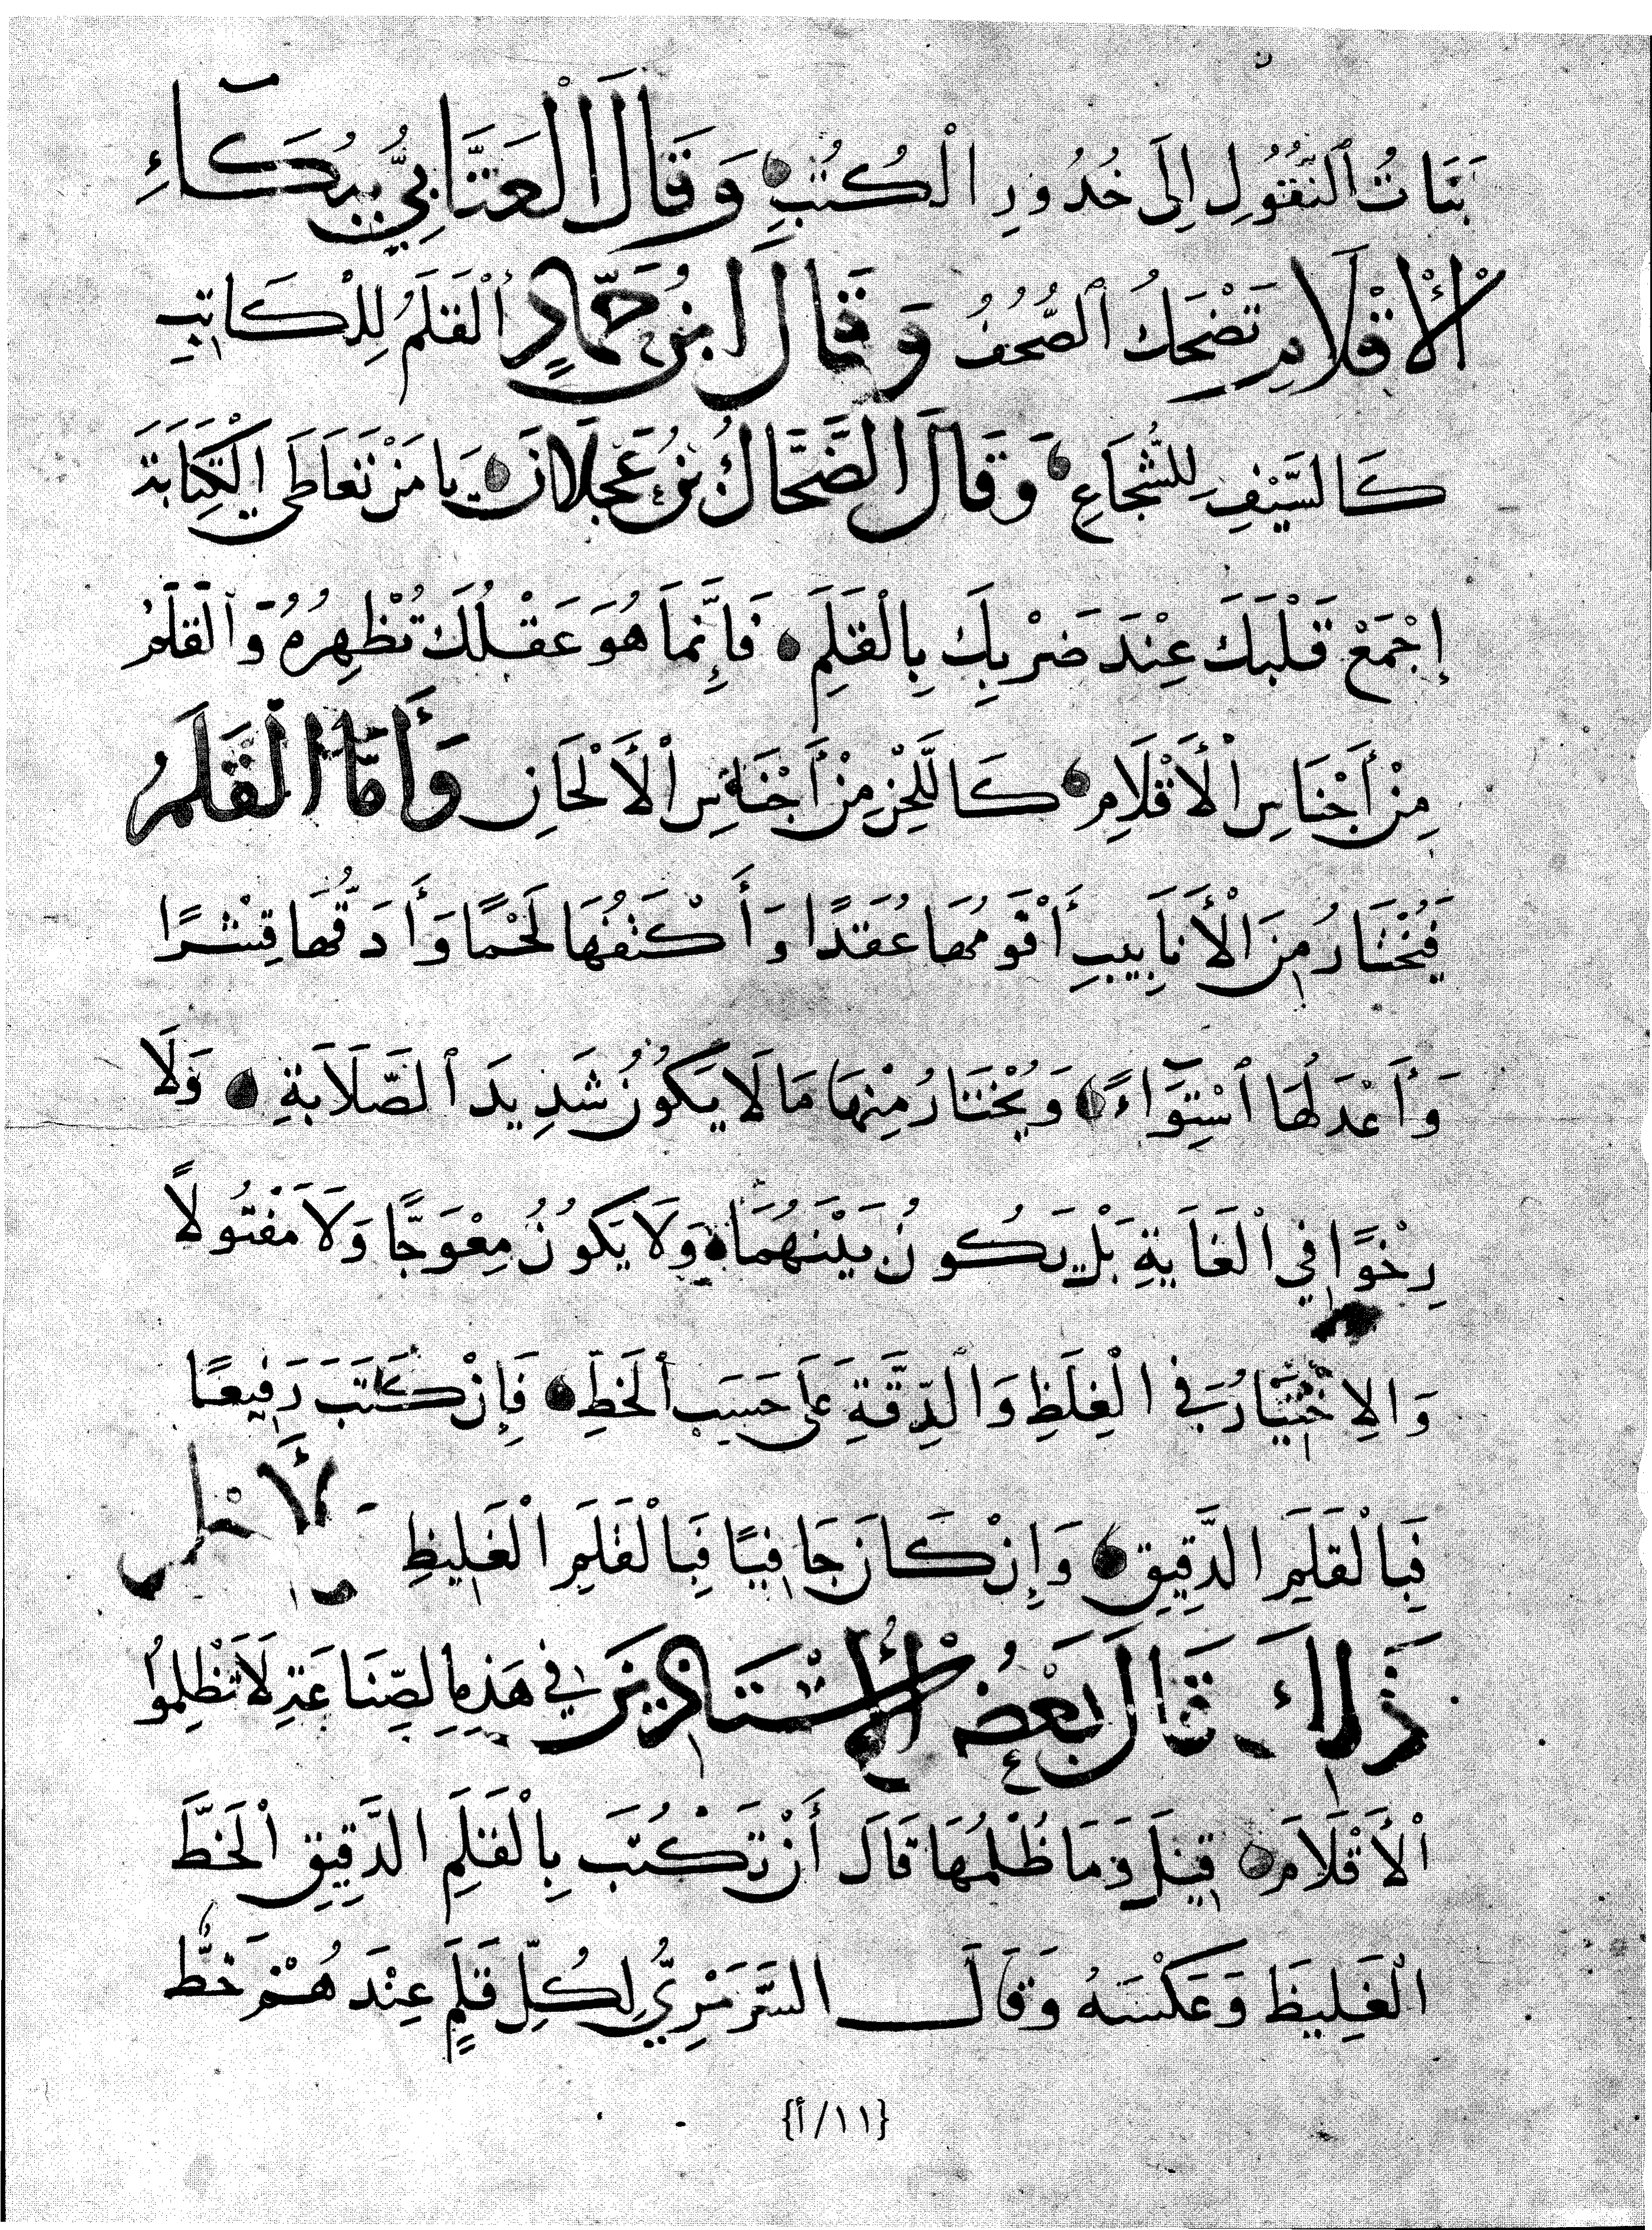 بَنَاتُ ٱلنُّقُولِ إِلَى خُدُورِ الْكُتُبِ وَقَالَ الْعَتَّابِيُّ بِبُكَاءِ
الْأَقْلَامِ تَضْحَكُ ٱلصُّحُفُ وَقَالَ ابْنُ حَمَّادٍ ٱلْقَلَمُ لِلْكَاتِبِ
كَالسَّيْفِ لِلشُّجَاعِ وَقَالَ الضَّحَّاكُ بْنُ عَجْلَانَ يَا مَنْ تَعَاطَى الْكِتَابَةَ
إِجْمَعْ قَلْبَكَ عِنْدَ ضَرْبِكَ بِالْقَلَمِ فَإِنَّمَا هُوَ عَقْلُكَ تُظْهِرُهُ وَٱلْقَلَمُ
مِنْ أَجْنَاسِ ٱلْأَقْلَامِ كَاللَّحْنِ مِنْ أَجْنَاسِ ٱلْأَلْحَانِ وَأَمَّا الْقَلَمُ
فَيُخْتَارُ مِنَ الْأَنَابِيبِ أَقْوَمُهَا عُقَدًا وَأَكْثَفُهَا لَحْمًا وَأَدَقُّهَا قِشْرًا
وَأَعْدَلُهَا ٱسْتِوَاءً وَيُخْتَارُ مِنْهَا مَا لَا يَكُونُ شَدِيدَ ٱلصَّلَابَةِ وَلَا
رِخْوًا فِي ٱلْغَايَةِ بَلْ يَكُونُ بَيْنَهُمَا وَلَا يَكُونُ مِعْوَجًّا وَلَا مَفْتُولًا
وَالِاخْتِيَارُ فِي الْغِلَظِ وَالدِّقَّةِ عَلَى حَسَبِ ٱلْخَطِّ فَإِنْ كَتَبَ رَفِيعًا
فَبِالْقَلَمِ الدَّقِيقِ وَإِنْ كَانَ جَافِيًا فَبِالْقَلَمِ الْغَلِيظِ وَلِأَجْلِ
ذَلِكَ قَالَ بَعْضُ الْأُسْتَاذِينَ فِي هَذِهِ الصِّنَاعَةِ لَا تَظْلِمُوا
ٱلْأَقْلَامَ قِيلَ وَمَا ظُلْمُهَا قَالَ أَنْ تَكْتُبَ بِالْقَلَمِ الدَّقِيقِ ٱلْخَطَّ
الْغَلِيظَ وَعَكْسَهُ وَقَالَ السَّرَّمَرِّيُّ لِكُلِّ قَلَمٍ عِنْدَهُمْ خَطٌّ
{١١/أ}